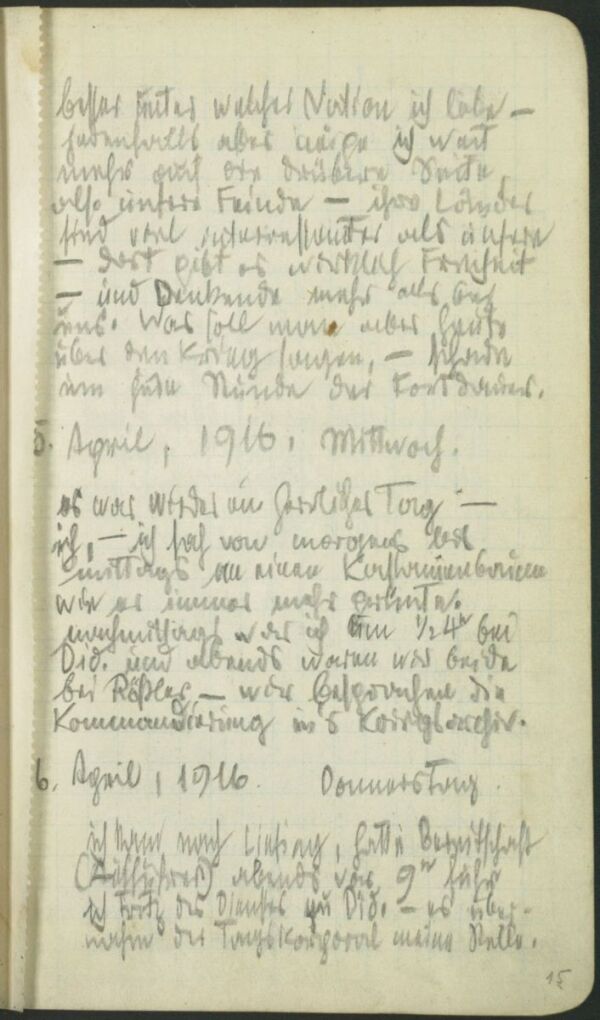 besser unter welcher Nation ich lebe –
jedenfalls aber neige ich weit
mehr auf die drübere Seite,
also unsere Feinde – ihre Länder
sind viel interessanter als unsere
– dort gibt es wirklich Freiheit
– und Denkende mehr als bei
uns. Was soll man aber heute
über den Krieg sagen, – schade
um jede Stunde der Fortdauer.
5. April, 1916. Mittwoch.
es war wieder ein herrlicher Tag –
ich, – ich sah von morgens bis
mittags an einen Kastanienbaum
wie er immer mehr grünte.
nachmittags war ich um ½4h bei
Did. und abends waren wir beide
bei Rößler, – wir besprachen die
Kommandierung in's Kriegsarchiv.
6. April, 1916. Donnerstag.
ich kam nach Liesing, hatte Bereitschaft
abends vor 9h fuhr
ich trotz des Dienstes zu Did. – es über-
nahm der Tagskorporal meine Stelle.
15